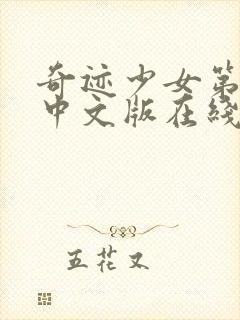 奇迹少女第
中文版在线
五花又